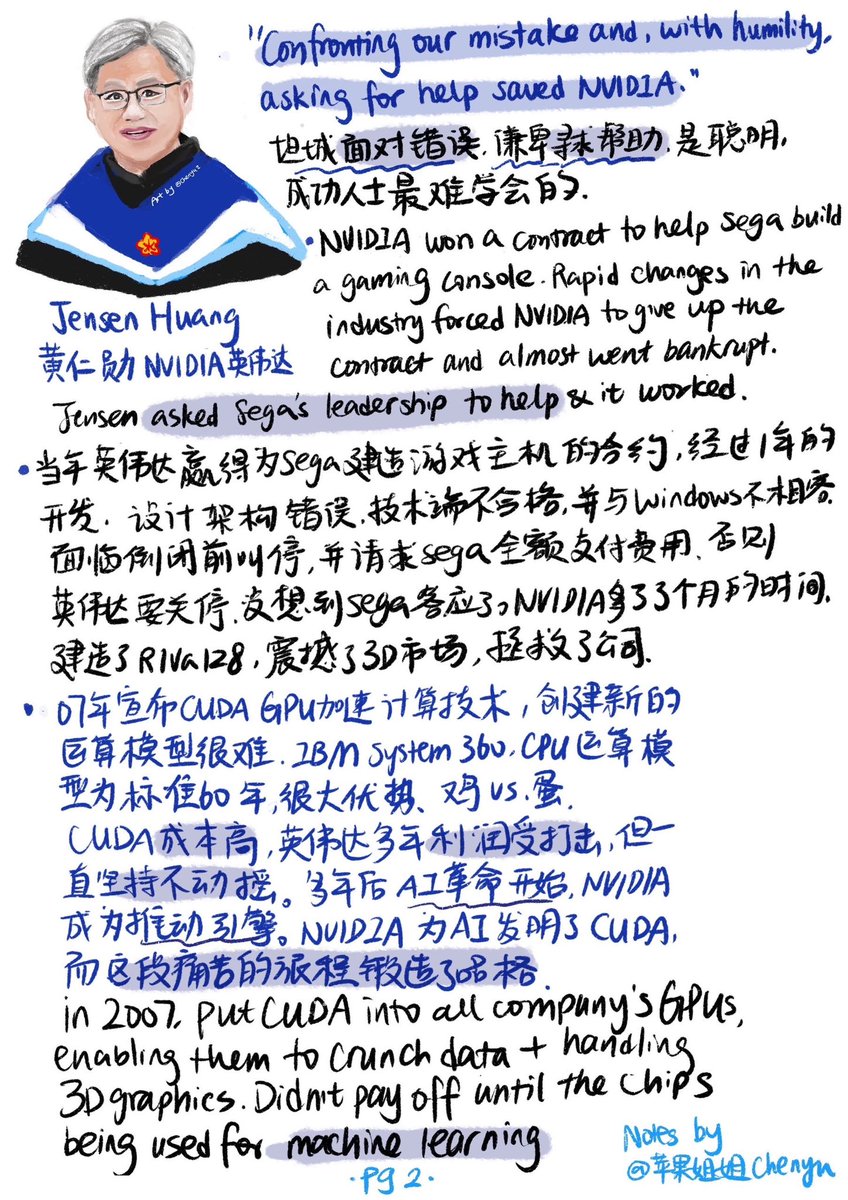 "Confronting our mistake and, with humility,
asking for help saved NVIDIA."
坦诚面对错误、谦卑寻求帮助、是聪明、
成功人士最难学会的.
Art by @chenyu
• NVIDIA won a contract to help Sega build
a gaming console. Rapid changes in the
industry forced NVIDIA to give up the
contract and almost went bankrupt.
Jensen Huang
黄仁勋 NVIDIA英伟达
Jensen asked Sega's leadership to help & it worked.
• 当年英伟达赢得为Sega建造游戏主机的合约, 经过1年的
开发. 设计架构错误, 技术端不合格, 并与Windows不相容.
面临倒闭前叫停, 并请求sega全额支付费用、否则
英伟达要关停. 没想到sega答应了。NVIDIA多了3个月的时间.
建造了RIVA128, 震撼了3D市场, 拯救了公司.
• 07年宣布CUDA GPU加速计算技术, 创建新的
运算模型很难. IBM System 360. CPU运算模
型为标准60年, 很大优势、鸡vs.蛋.
CUDA成本高, 英伟达多年利润受打击, 但一
直坚持不动摇。多年后AI革命开始, NVIDIA
成为推动引擎。NVIDIA 为AI发明了CUDA,
而这段痛苦的旅程锻造了品格.
in 2007. put CUDA into all company's GPUs,
enabling them to crunch data + handling
3D graphics. Didn't pay off until the chips
being used for machine learning
Notes by
@苹果姐姐Chenyu
·Pg 2·